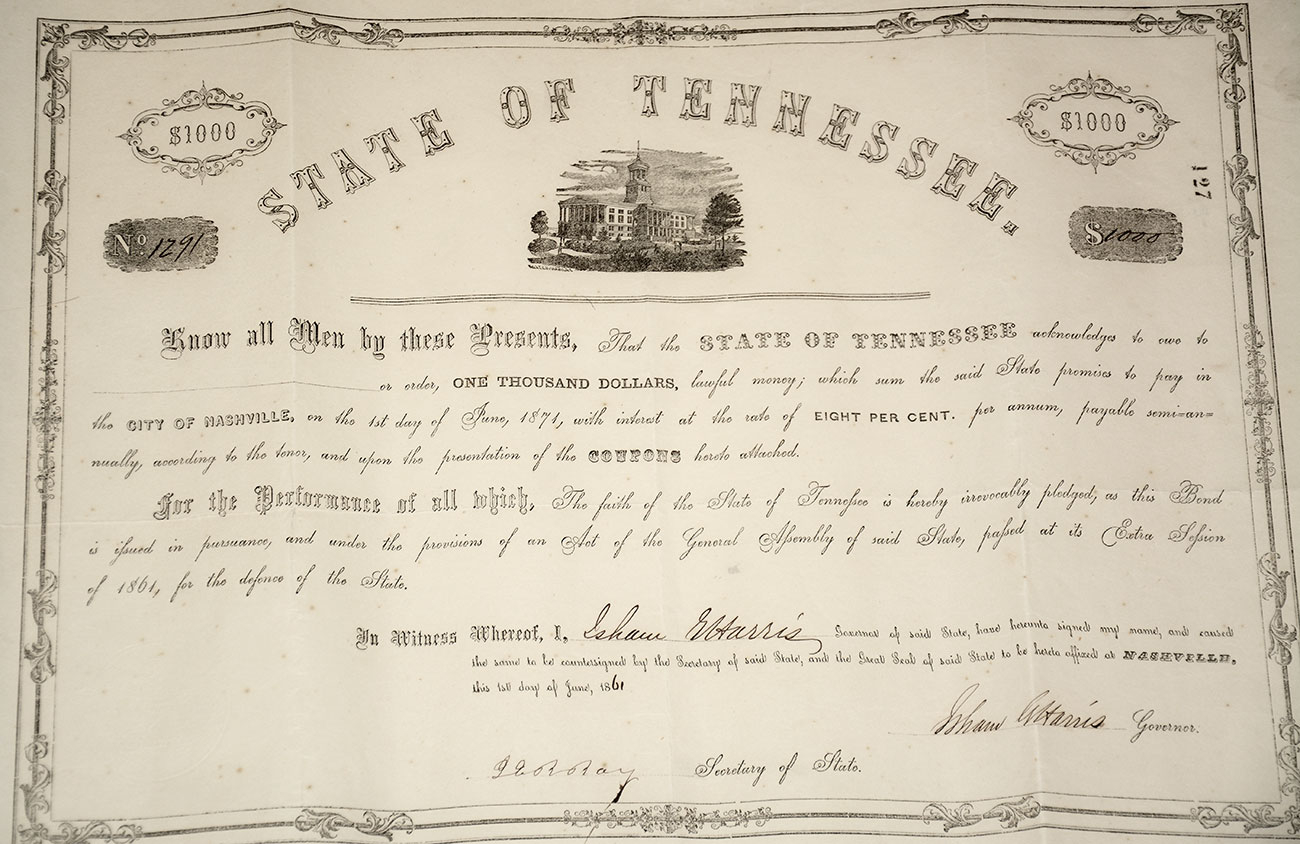 STATE OF TENNESSEE.
$1000
$1000
127
No. 1291
$1000
Know all Men by these Presents, That the STATE OF TENNESSEE acknowledges to owe to
or order, ONE THOUSAND DOLLARS, lawful money; which sum the said State promises to pay in
the CITY OF NASHVILLE, on the 1st day of June, 1871, with interest at the rate of EIGHT PER CENT. per annum, payable semi=an=
nually, according to the tenor, and upon the presentation of the COUPONS hereto attached.
For the Performance of all which, The faith of the State of Tennessee is hereby irrevocably pledged; as this Bond
is issued in pursuance, and under the provisions of an Act of the General Assembly of said State, passed at its Extra Session
of 1861, for the defence of the State.
In Witness Whereof, I, Isham G Harris Governor of said State, have hereunto signed my name, and caused
the same to be countersigned by the Secretary of said State, and the Great Seal of said State to be hereto affixed at NASHVILLE,
this 1st day of June, 1861
Isham G Harris Governor.
Ray Secretary of State.